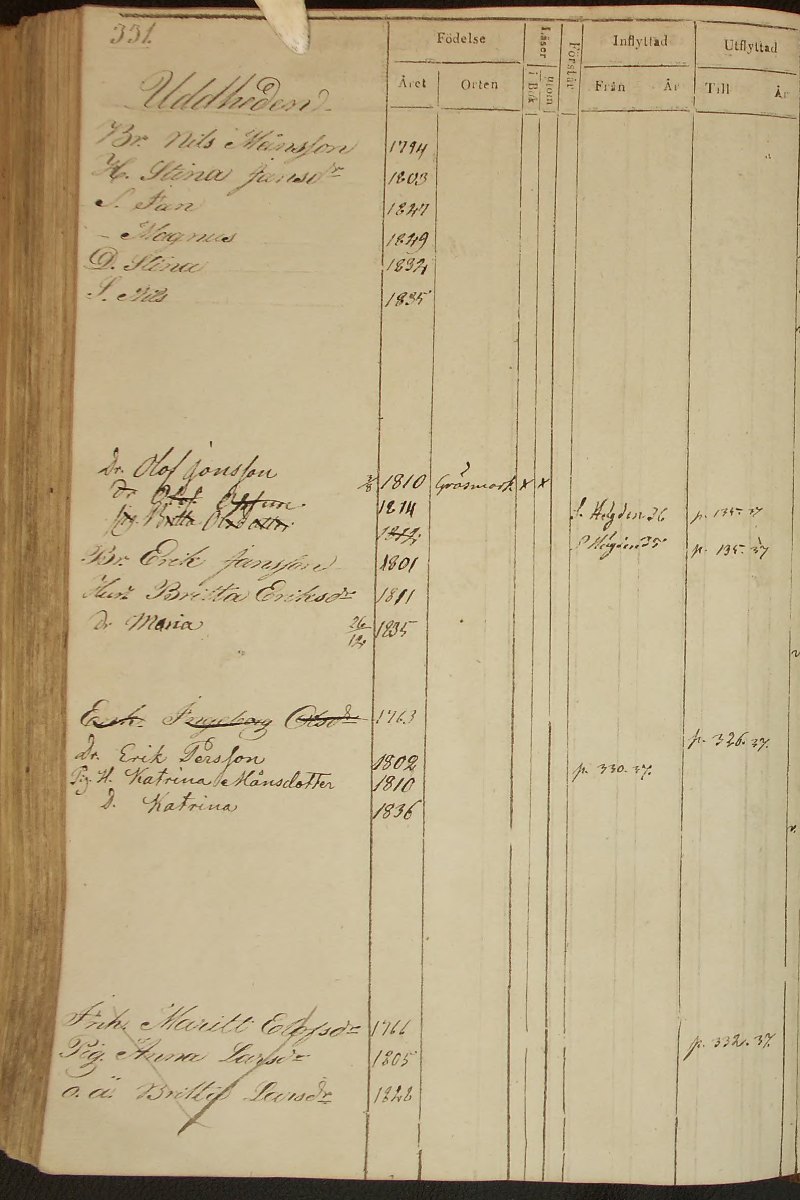 331.
Födelse Läser Förstår Inflyttad Utflyttad
Året Orten i Bok utom Från År Till År
Uddheden
Br. Nils Månsson 1794
H. Stina Jansdr 1803
S. Jan 1827
- Magnus 1829
D. Stina 1832
S. Nils 1835
Dr. Olof Jonsson 3/8 1810 Gräsmark x x
Dr Olof Olsson 1814 f. Högden 36 p. 135. 37
Pig. Britta Olsdotter 1812 f Högden 35 p. 135. 37
Br. Erik Jansson 1801
Hust Britta Eriksdr 1811
dr Maria 26/12 1835
Enk. Ingeborg Olsdr 1763
p. 326. 37.
Dr. Erik Persson 1802
Pig. H. Katrina Månsdotter 1810 p. 330. 37.
D. Katrina 1836
Enk. Maritt Olofsdr 1766
p. 332. 37.
Pig. Anna Larsdr 1805
o. ä. Britta Larsdr 1828